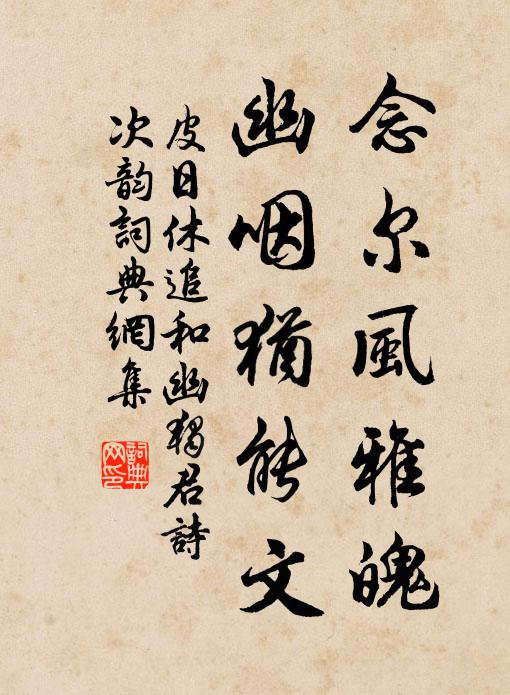 念尔風雅魄
幽咽猶能文
皮日休追和幽獨君詩
次韵詞典網集
詞典網印